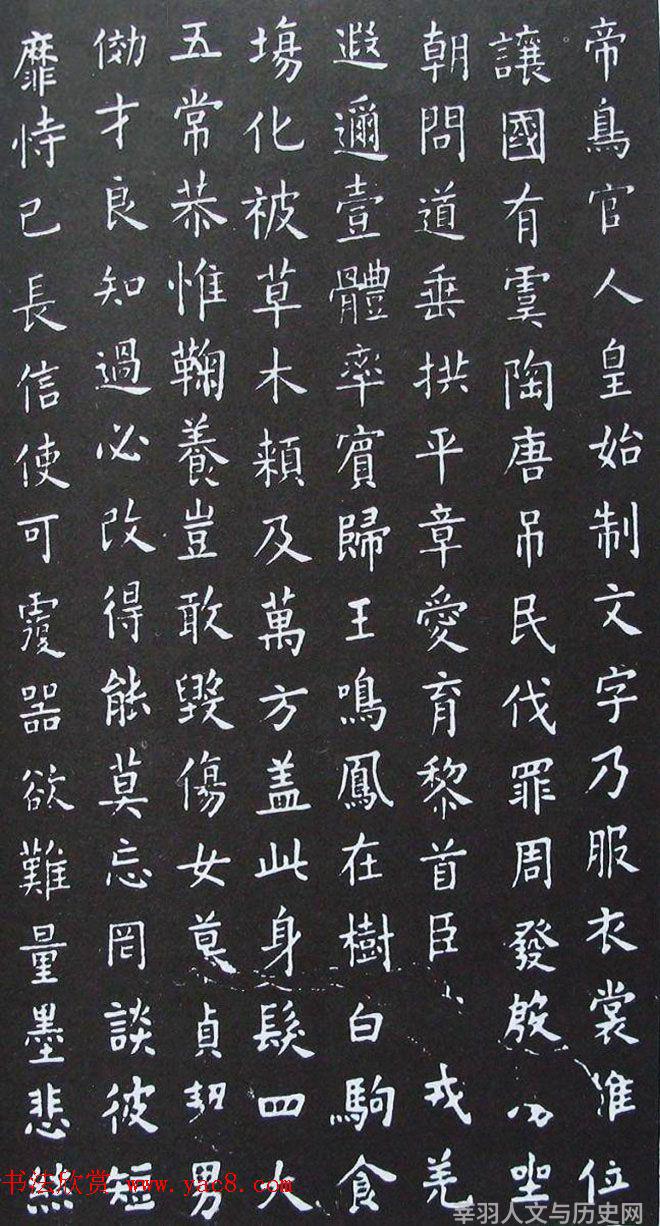 帝鳥官人皇始制文字乃服衣裳推位
讓國有虞陶唐吊民伐罪周發殷坐
朝問道垂拱平章愛育黎首臣戎羌
遐邇壹體率賓歸王鳴鳳在樹白駒食
場化被草木賴及萬方盖此身髮四大
五常恭惟鞠養豈敢毀傷女慕貞絜男
効才良知過必改得能莫忘罔談彼短
靡恃己長信使可覆器欲難量墨悲
书法欣赏 www.yac8.com
幸羽人文与历史网